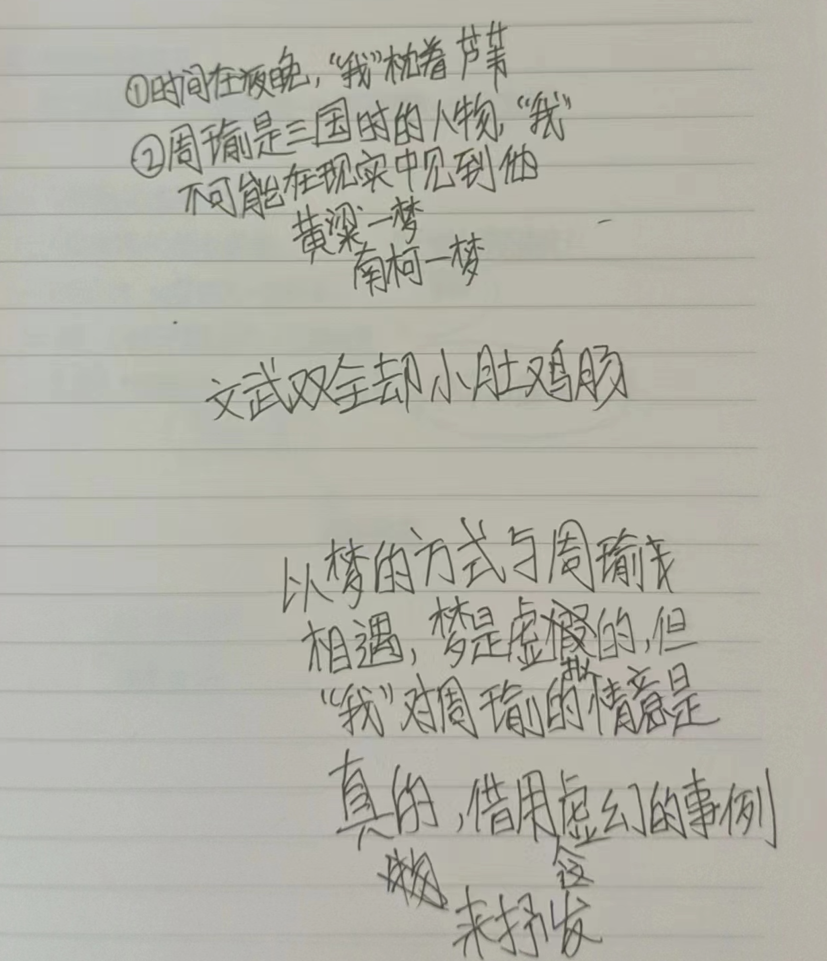 ①时间在夜晚，“我”枕着芦苇
②周瑜是三国时的人物，“我”
不可能在现实中见到他
黄粱一梦
南柯一梦
文武双全却小肚鸡肠
以梦的方式与周瑜
相遇，梦是虚假的，但
“我”对周瑜的情意是
真的，借用虚幻的事例
来抒发